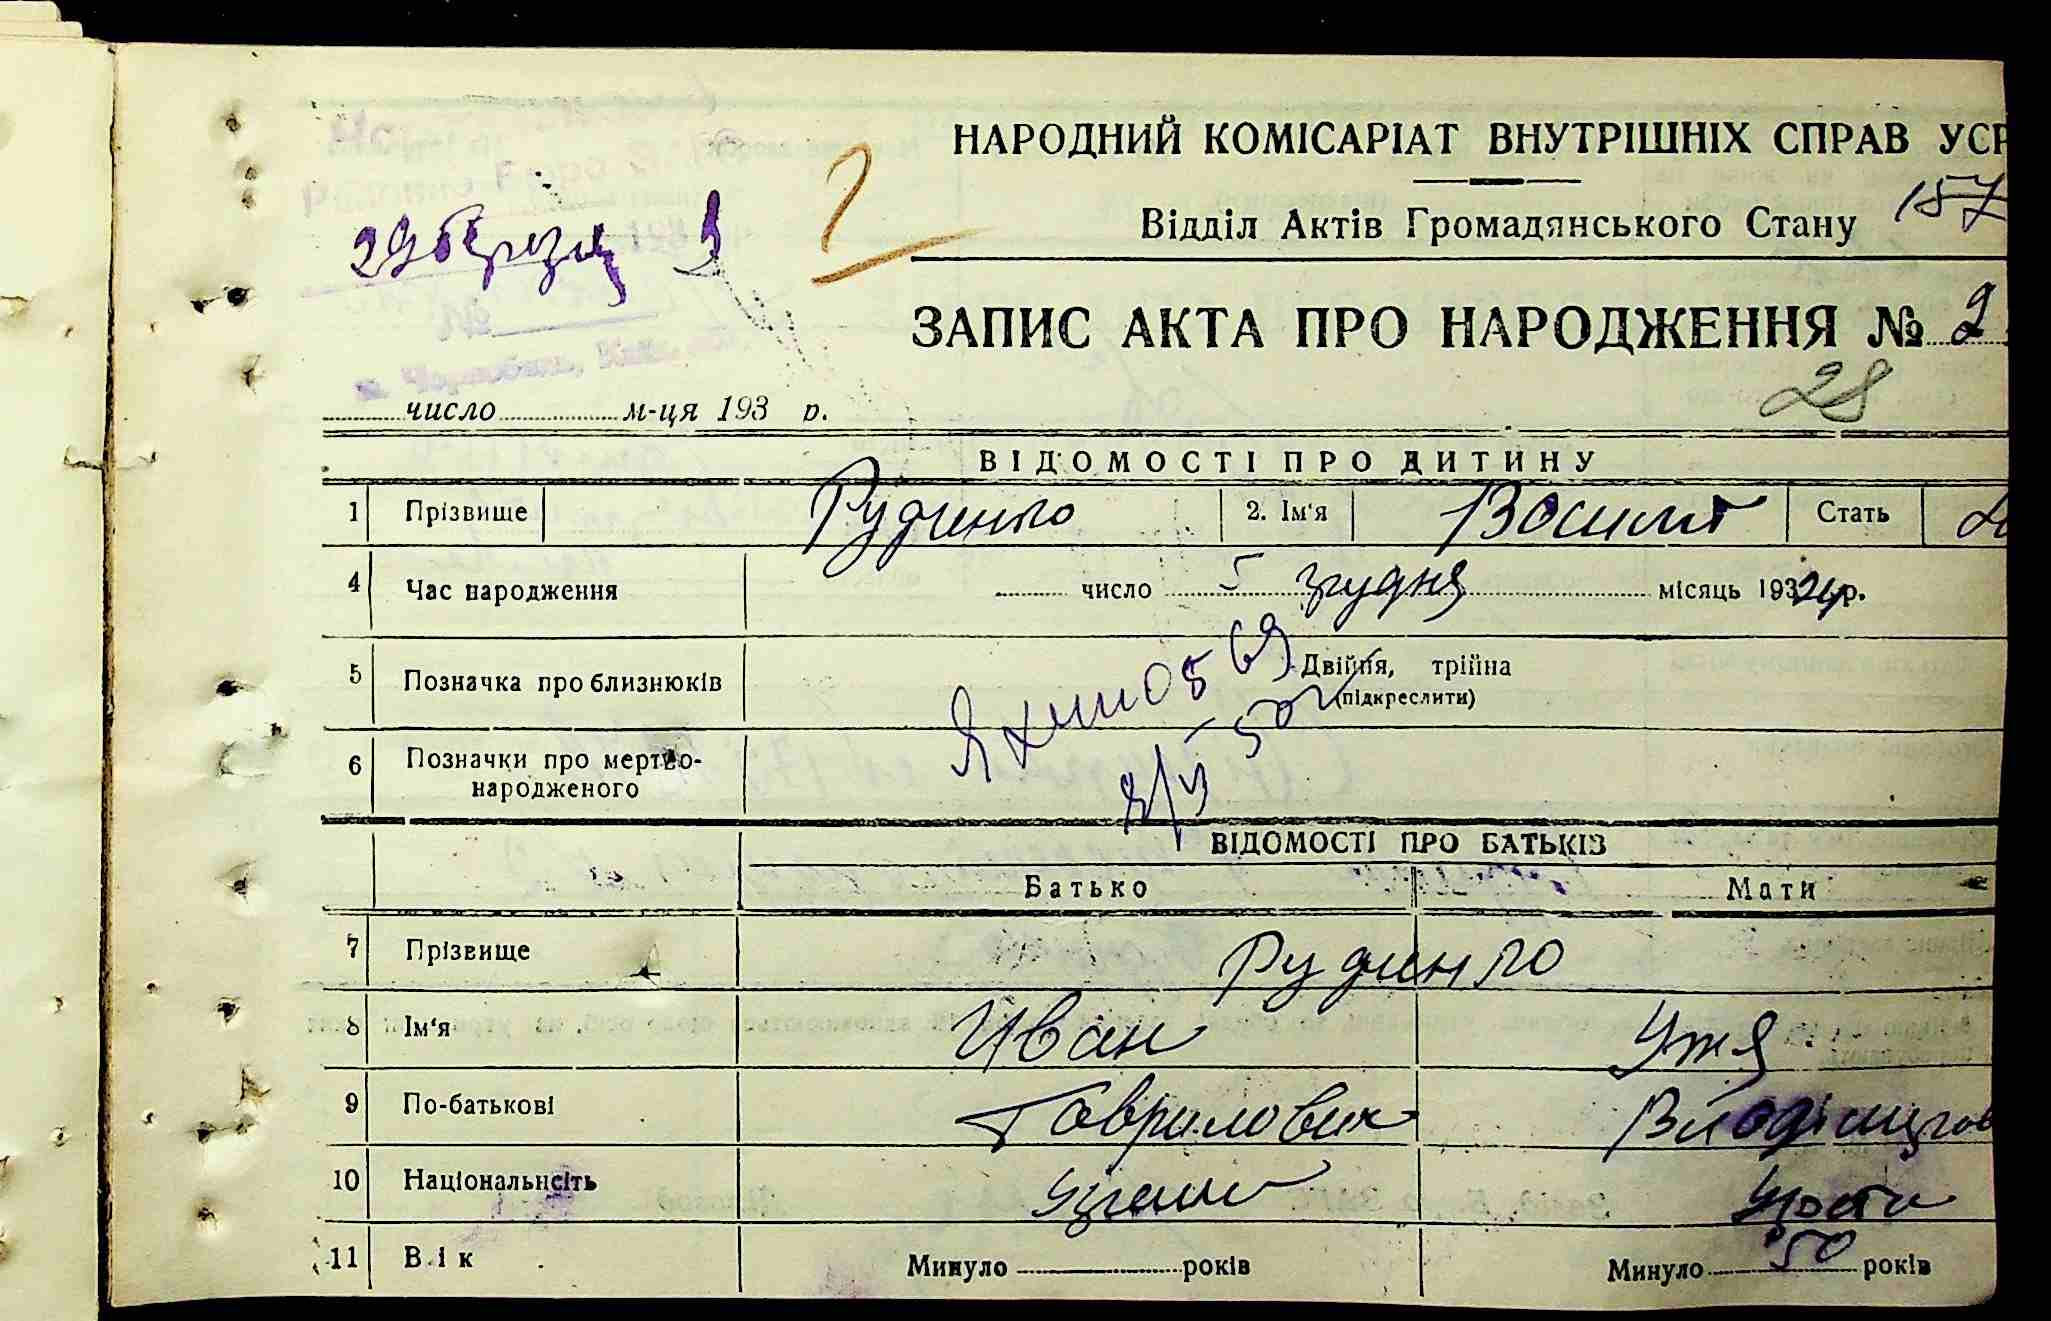 НАРОДНИЙ КОМІСАРІАТ ВНУТРІШНІХ СПРАВ УСР
Відділ Актів Громадянського Стану 157
29 березня
ЗАПИС АКТА ПРО НАРОДЖЕННЯ № 2
28
число м-ця 193 р.
ВІДОМОСТІ ПРО ДИТИНУ
1 Прізвище Руденко 2. Ім'я Василь Стать
4 Час народження число 5 грудня місяць 1924 р.
5 Позначка про близнюків Двійня, трійна
(підкреслити)
6 Позначки про мертво-
народженого
ВІДОМОСТІ ПРО БАТЬКІВ
Батько Мати
7 Прізвище Руденко
8 Ім'я Иван
9 По-батькові Гаврилович
10 Національність
11 Вік Минуло років Минуло 50 років